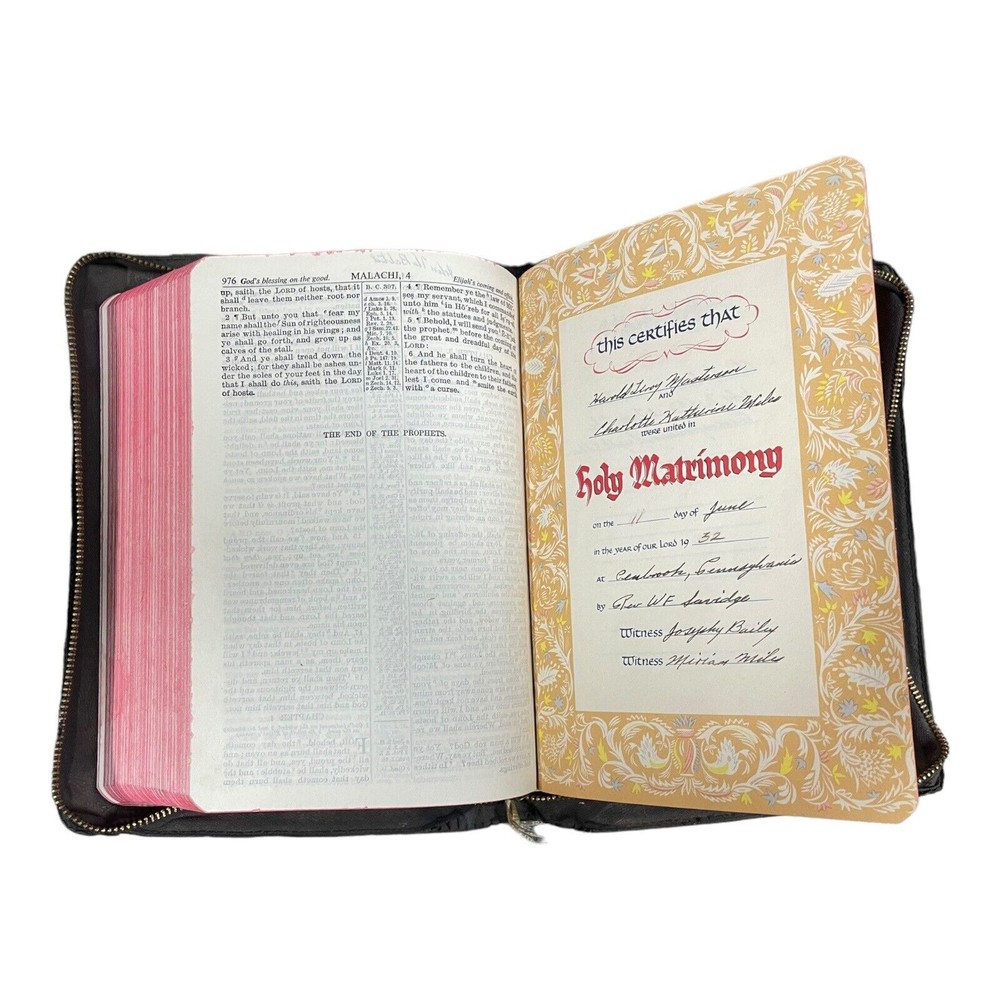 976 God's blessing on the good. MALACHI, 4 Elijah's coming and office.
up, saith the LORD of hosts, that it
shall leave them neither root nor
branch.
2 ¶ But unto you that fear my
name shall the Sun of righteousness
arise with healing in his wings; and
ye shall go forth, and grow up as
calves of the stall.
3 And ye shall tread down the
wicked; for they shall be ashes un-
der the soles of your feet in the day
that I shall do this, saith the LORD
of hosts.
B. C. 397.
4 ¶ Remember ye the law of
my servant, which I commanded
unto him in Hō'reb for all
with the statutes and judgments.
5 ¶ Behold, I will send you
the prophet before the coming of
the great and dreadful day of the
LORD:
6 And he shall turn the heart of
the fathers to the children, and the
heart of the children to their fathers,
lest I come and smite the earth
with a curse.
THE END OF THE PROPHETS.
this certifies that
Harold Masterson
AND
Charlotte Katherine Miles
were united in
Holy Matrimony
on the 11 day of June
in the year of our Lord 19 32
at Penbrook, Pennsylvania
by Rev W F Savidge
Witness Josephy Bailey
Witness Miriam Miles